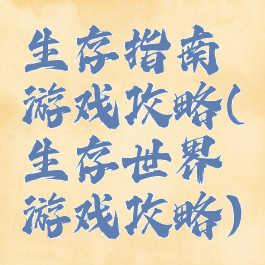 生存指南
游戏攻略(
生存世界
游戏攻略)